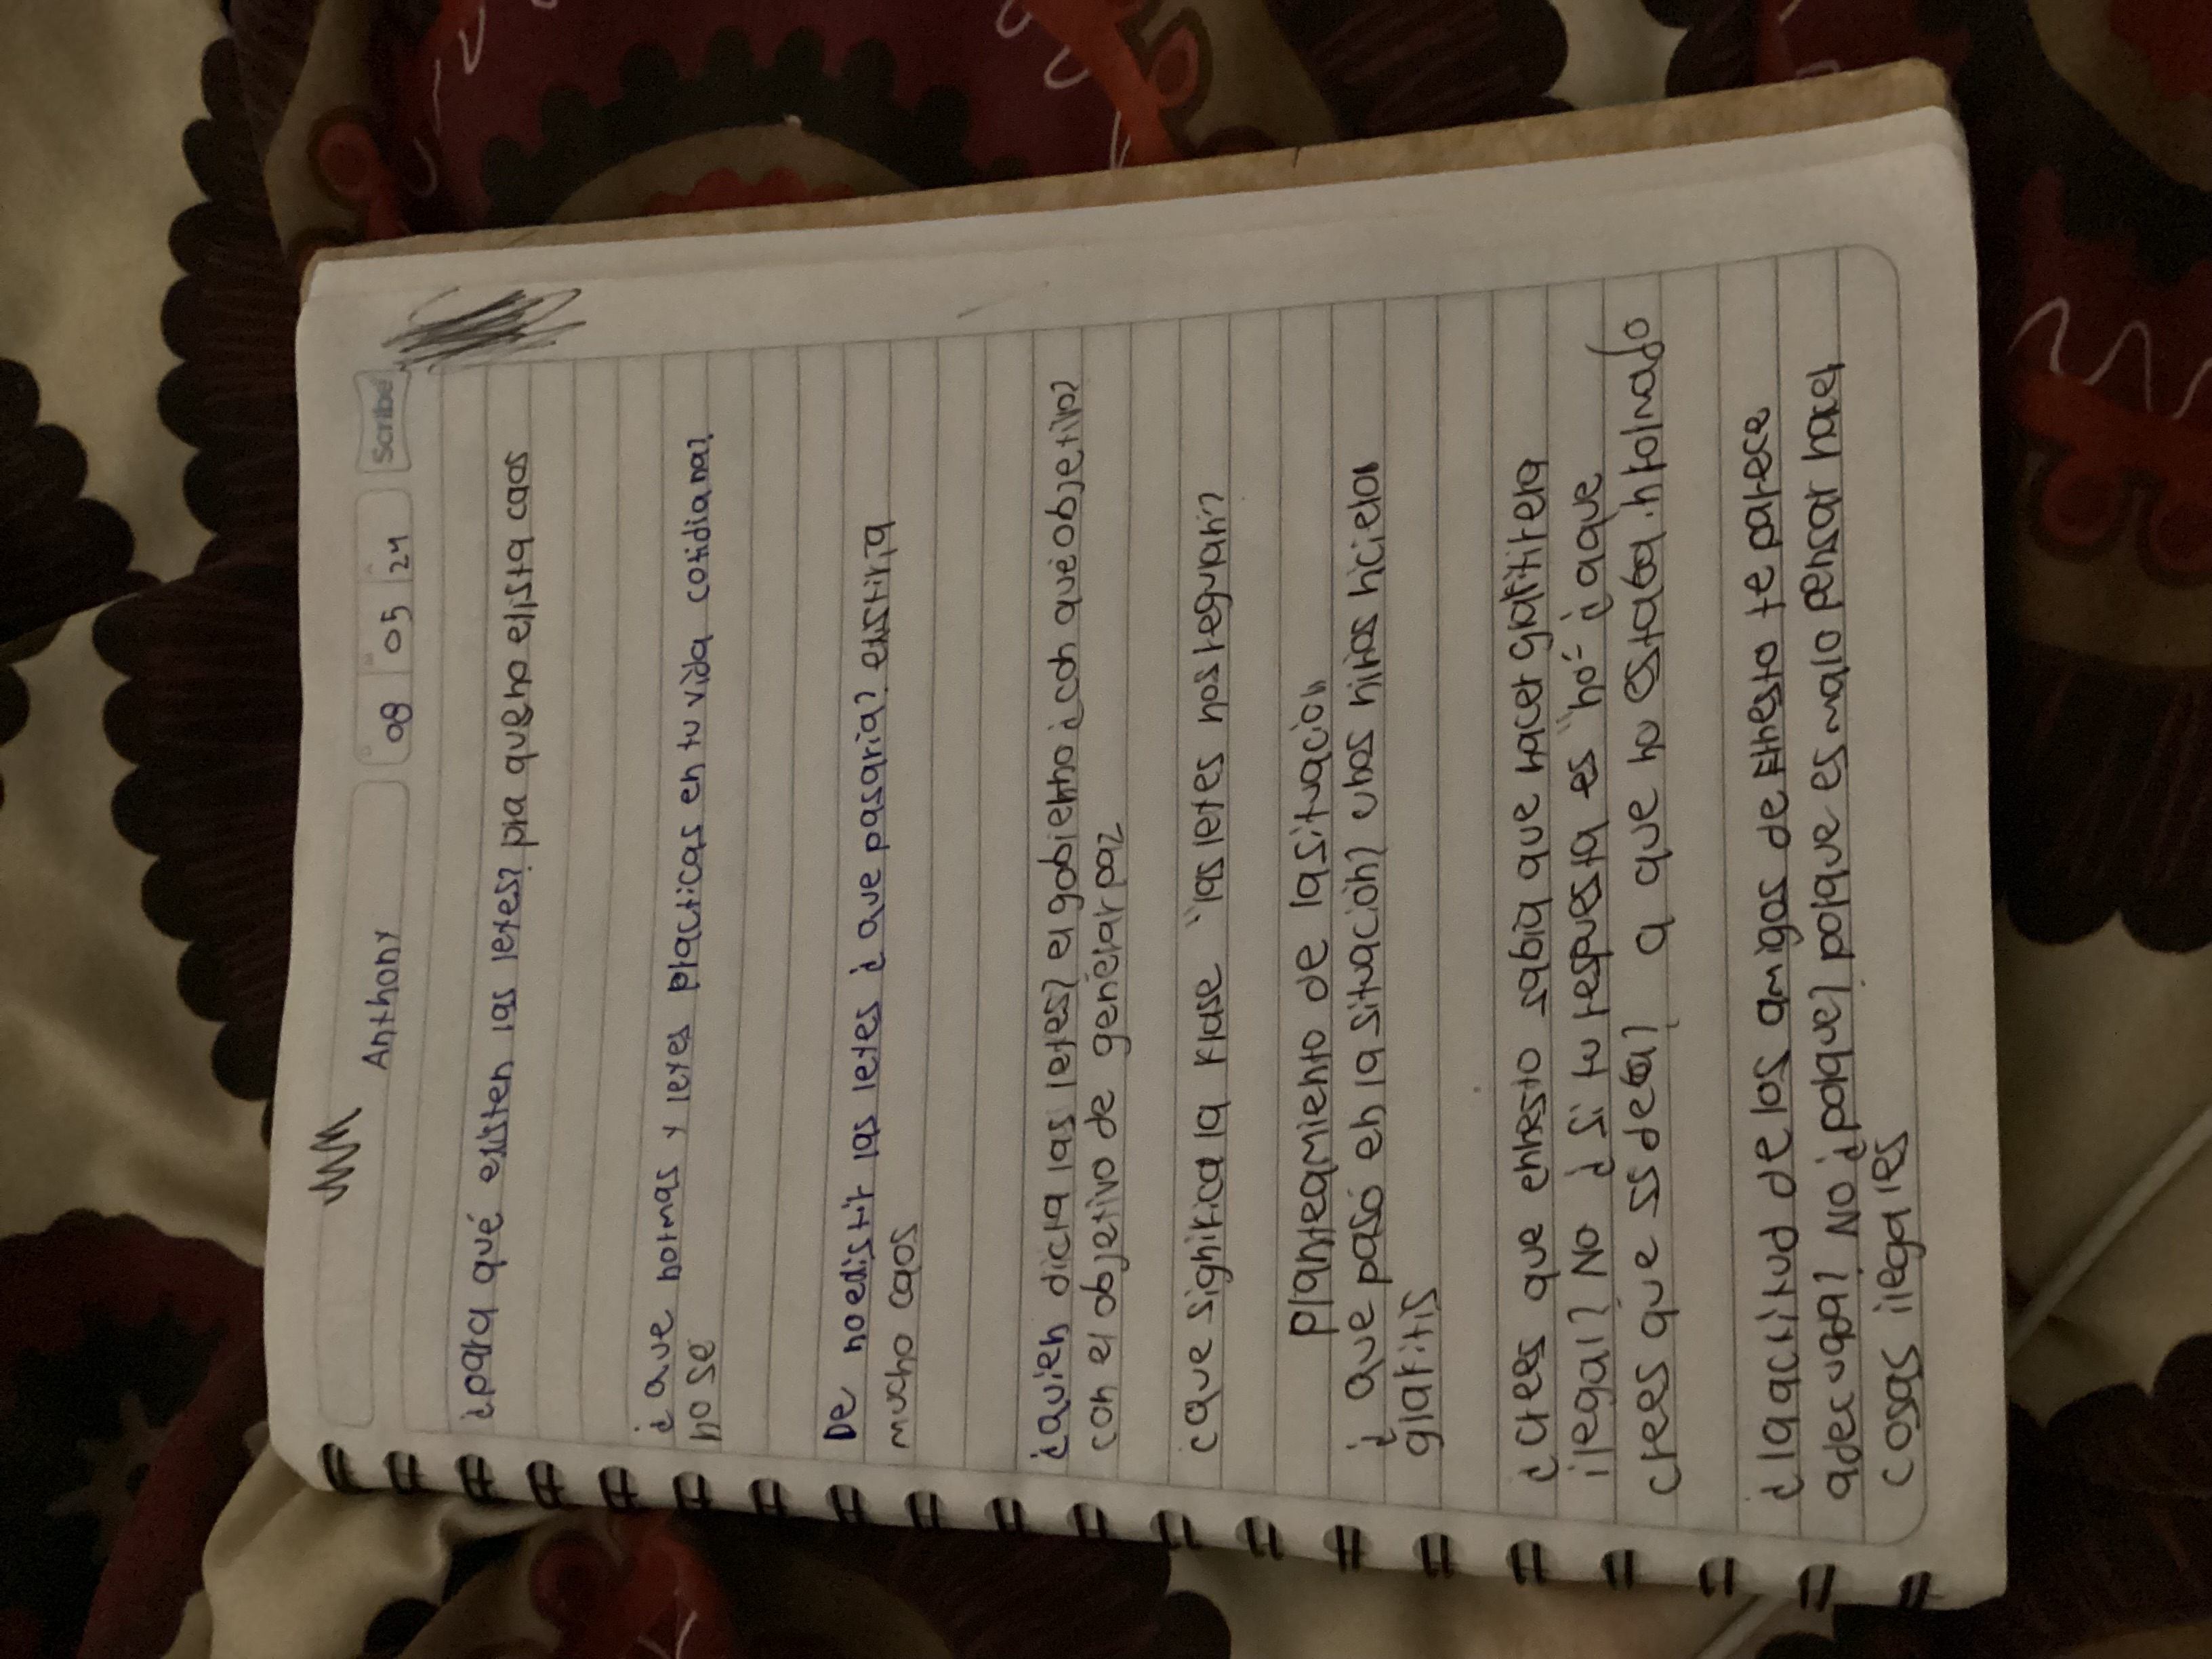 Anthony
08 05 24
Scribe
¿para qué existen las leyes? pra que no exista caos
¿que normas y leyes practicas en tu vida cotidiana?
no se
De no existir las leyes ¿que pasaria? existiria
mucho caos
¿quien dicta las leyes? el gobierno ¿con que objetivo?
con el objetivo de generar paz
¿que significa la frase "las leyes nos regulan?
planteamiento de la situacion
¿que paso en la situacion? unos niños hicieron
grafitis
¿crees que ernesto sabia que hacer grafitiera
ilegal? No ¿si tu respuesta es "no" ¿aque
crees que ss deba? a que no estaba informado
¿la actitud de los amigos de Ernesto te parece
adecuada? No ¿porque? porque es malo pensar hacer
cosas ilegales